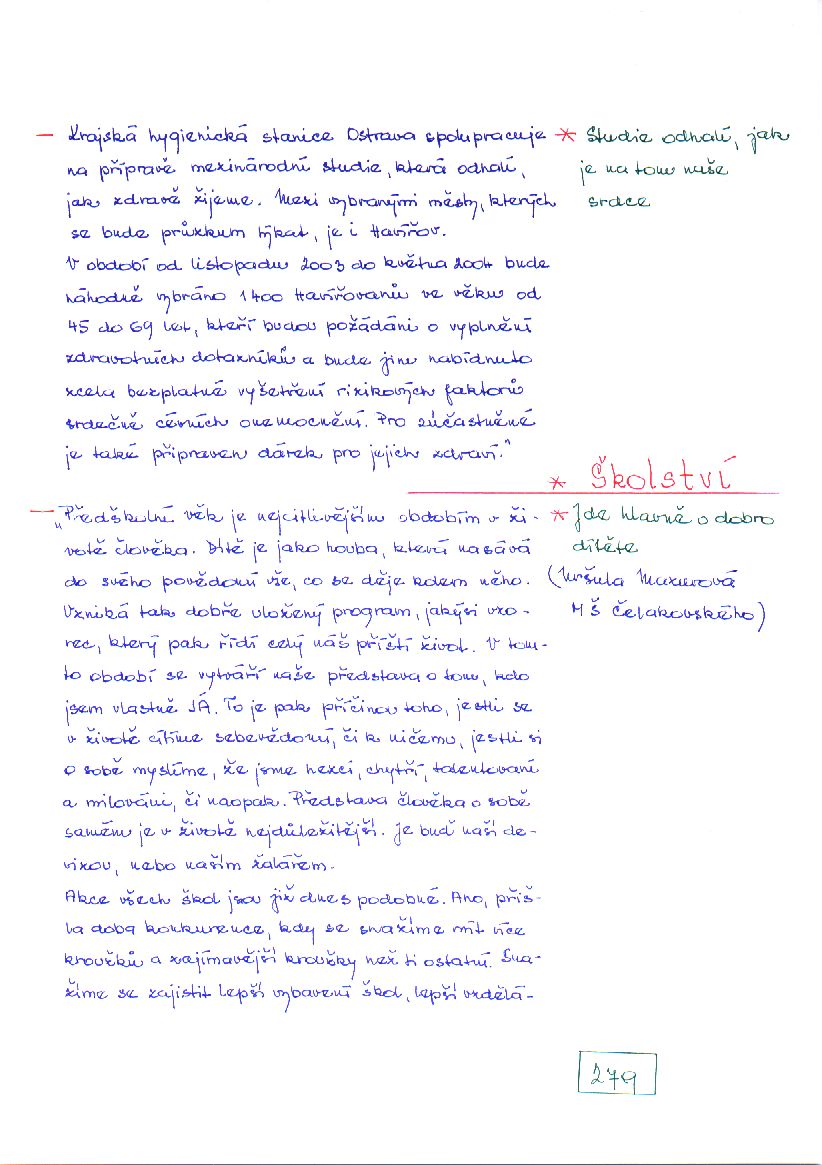 — Krajská hygienická stanice Ostrava spolupracuje
na přípravě mezinárodní studie, která odhalí,
jak zdravě žijeme. Mezi vybranými městy, kterých
se bude průzkum týkat, je i Havířov.
V období od listopadu 2003 do května 2004 bude
náhodně vybráno 1400 Havířovanů ve věku od
45 do 69 let, kteří budou požádáni o vyplnění
zdravotních dotazníků a bude jim nabídnuto
zcela bezplatné vyšetření rizikových faktorů
srdečně cévních onemocnění. Pro zúčastněné
je také připraven dárek pro jejich zdraví."
* Studie odhalí, jak
je na tom naše
srdce
* Školství
— "Předškolní věk je nejcitlivějším obdobím v ži-
votě člověka. Dítě je jako houba, která nasává
do svého povědomí vše, co se děje kolem něho.
Vzniká tak dobře uložený program, jakýsi vzo-
rec, který pak řídí celý náš příští život. V tom-
to období se vytváří naše představa o tom, kdo
jsem vlastně JÁ. To je pak příčinou toho, jestli se
v životě cítíme sebevědomí, či k ničemu, jestli si
o sobě myslíme, že jsme hezcí, chytří, talentovaní
a milováni, či naopak. Představa člověka o sobě
samém je v životě nejdůležitější. Je buď naší de-
vizou, nebo naším žalářem.
Akce všech škol jsou již dnes podobné. Ano, přiš-
la doba konkurence, kdy se snažíme mít více
kroužků a zajímavější kroužky než ti ostatní. Sna-
žíme se zajistit lepší vybavení škol, lepší vzdělá-
* Jde hlavně o dobro
dítěte
(Uršula Mazurová
MŠ Čelakovského)
279